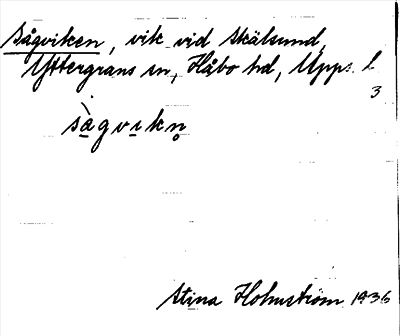 Sågviken, vik vid Skälsund,
Yttergrans sn, Håbo hd, Upps. l
3
sàgvikn̥
Stina Holmström 1936